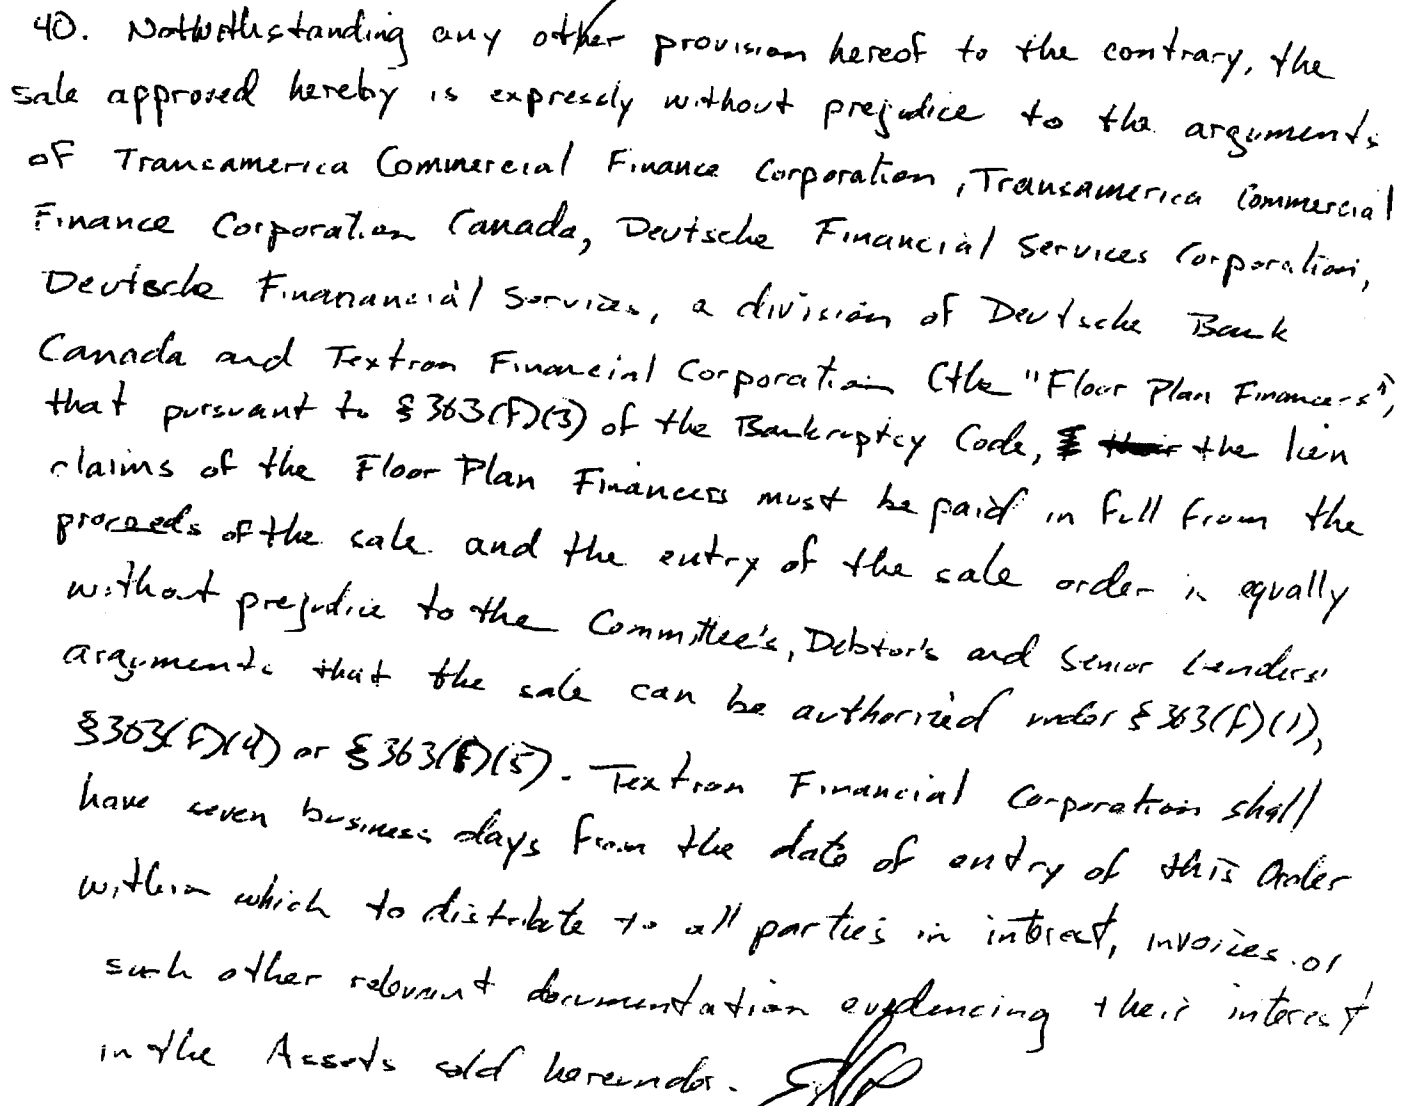 40. Notwithstanding any other provision hereof to the contrary, the
sale approved hereby is expressly without prejudice to the arguments
of Transamerica Commercial Finance Corporation, Transamerica Commercial
Finance Corporation Canada, Deutsche Financial Services Corporation,
Deutsche Finanancial Services, a division of Deutsche Bank
Canada and Textron Financial Corporation (the "Floor Plan Financers"),
that pursuant to §363(f)(3) of the Bankruptcy Code, the lien
claims of the Floor Plan Financers must be paid in full from the
proceeds of the sale and the entry of the sale order is equally
without prejudice to the Committee's, Debtor's and Senior Lenders'
arguments that the sale can be authorized under §363(f)(1),
§363(f)(4) or §363(f)(5). Textron Financial Corporation shall
have seven business days from the date of entry of this Order
within which to distribute to all parties in interest, invoices or
such other relevant documentation evidencing their interest
in the Assets sold hereunder.